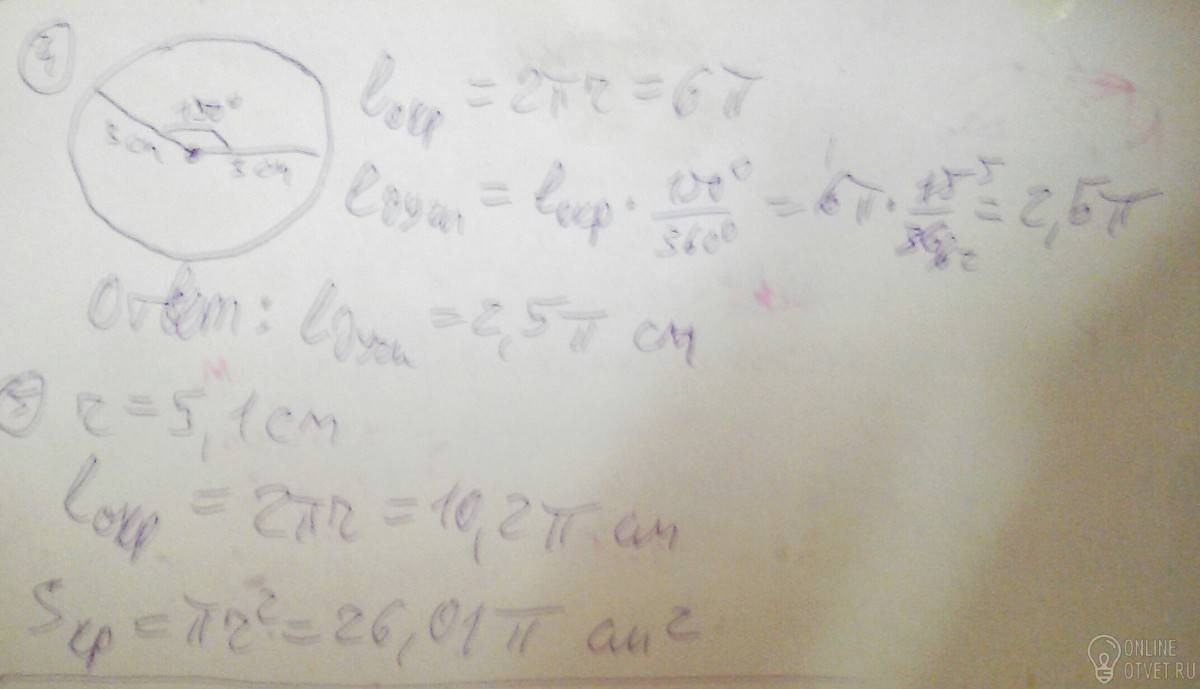 4)
150°
3 см
3 см
lокр = 2πr = 6π
lдуги = lокр · 150°/360° = 6π · 15/36 = 2,5π
Ответ: lдуги = 2,5π см
5) r = 5,1 см
lокр = 2πr = 10,2π см
Sкр = πr² = 26,01π см²
ONLINE
OTVET.RU